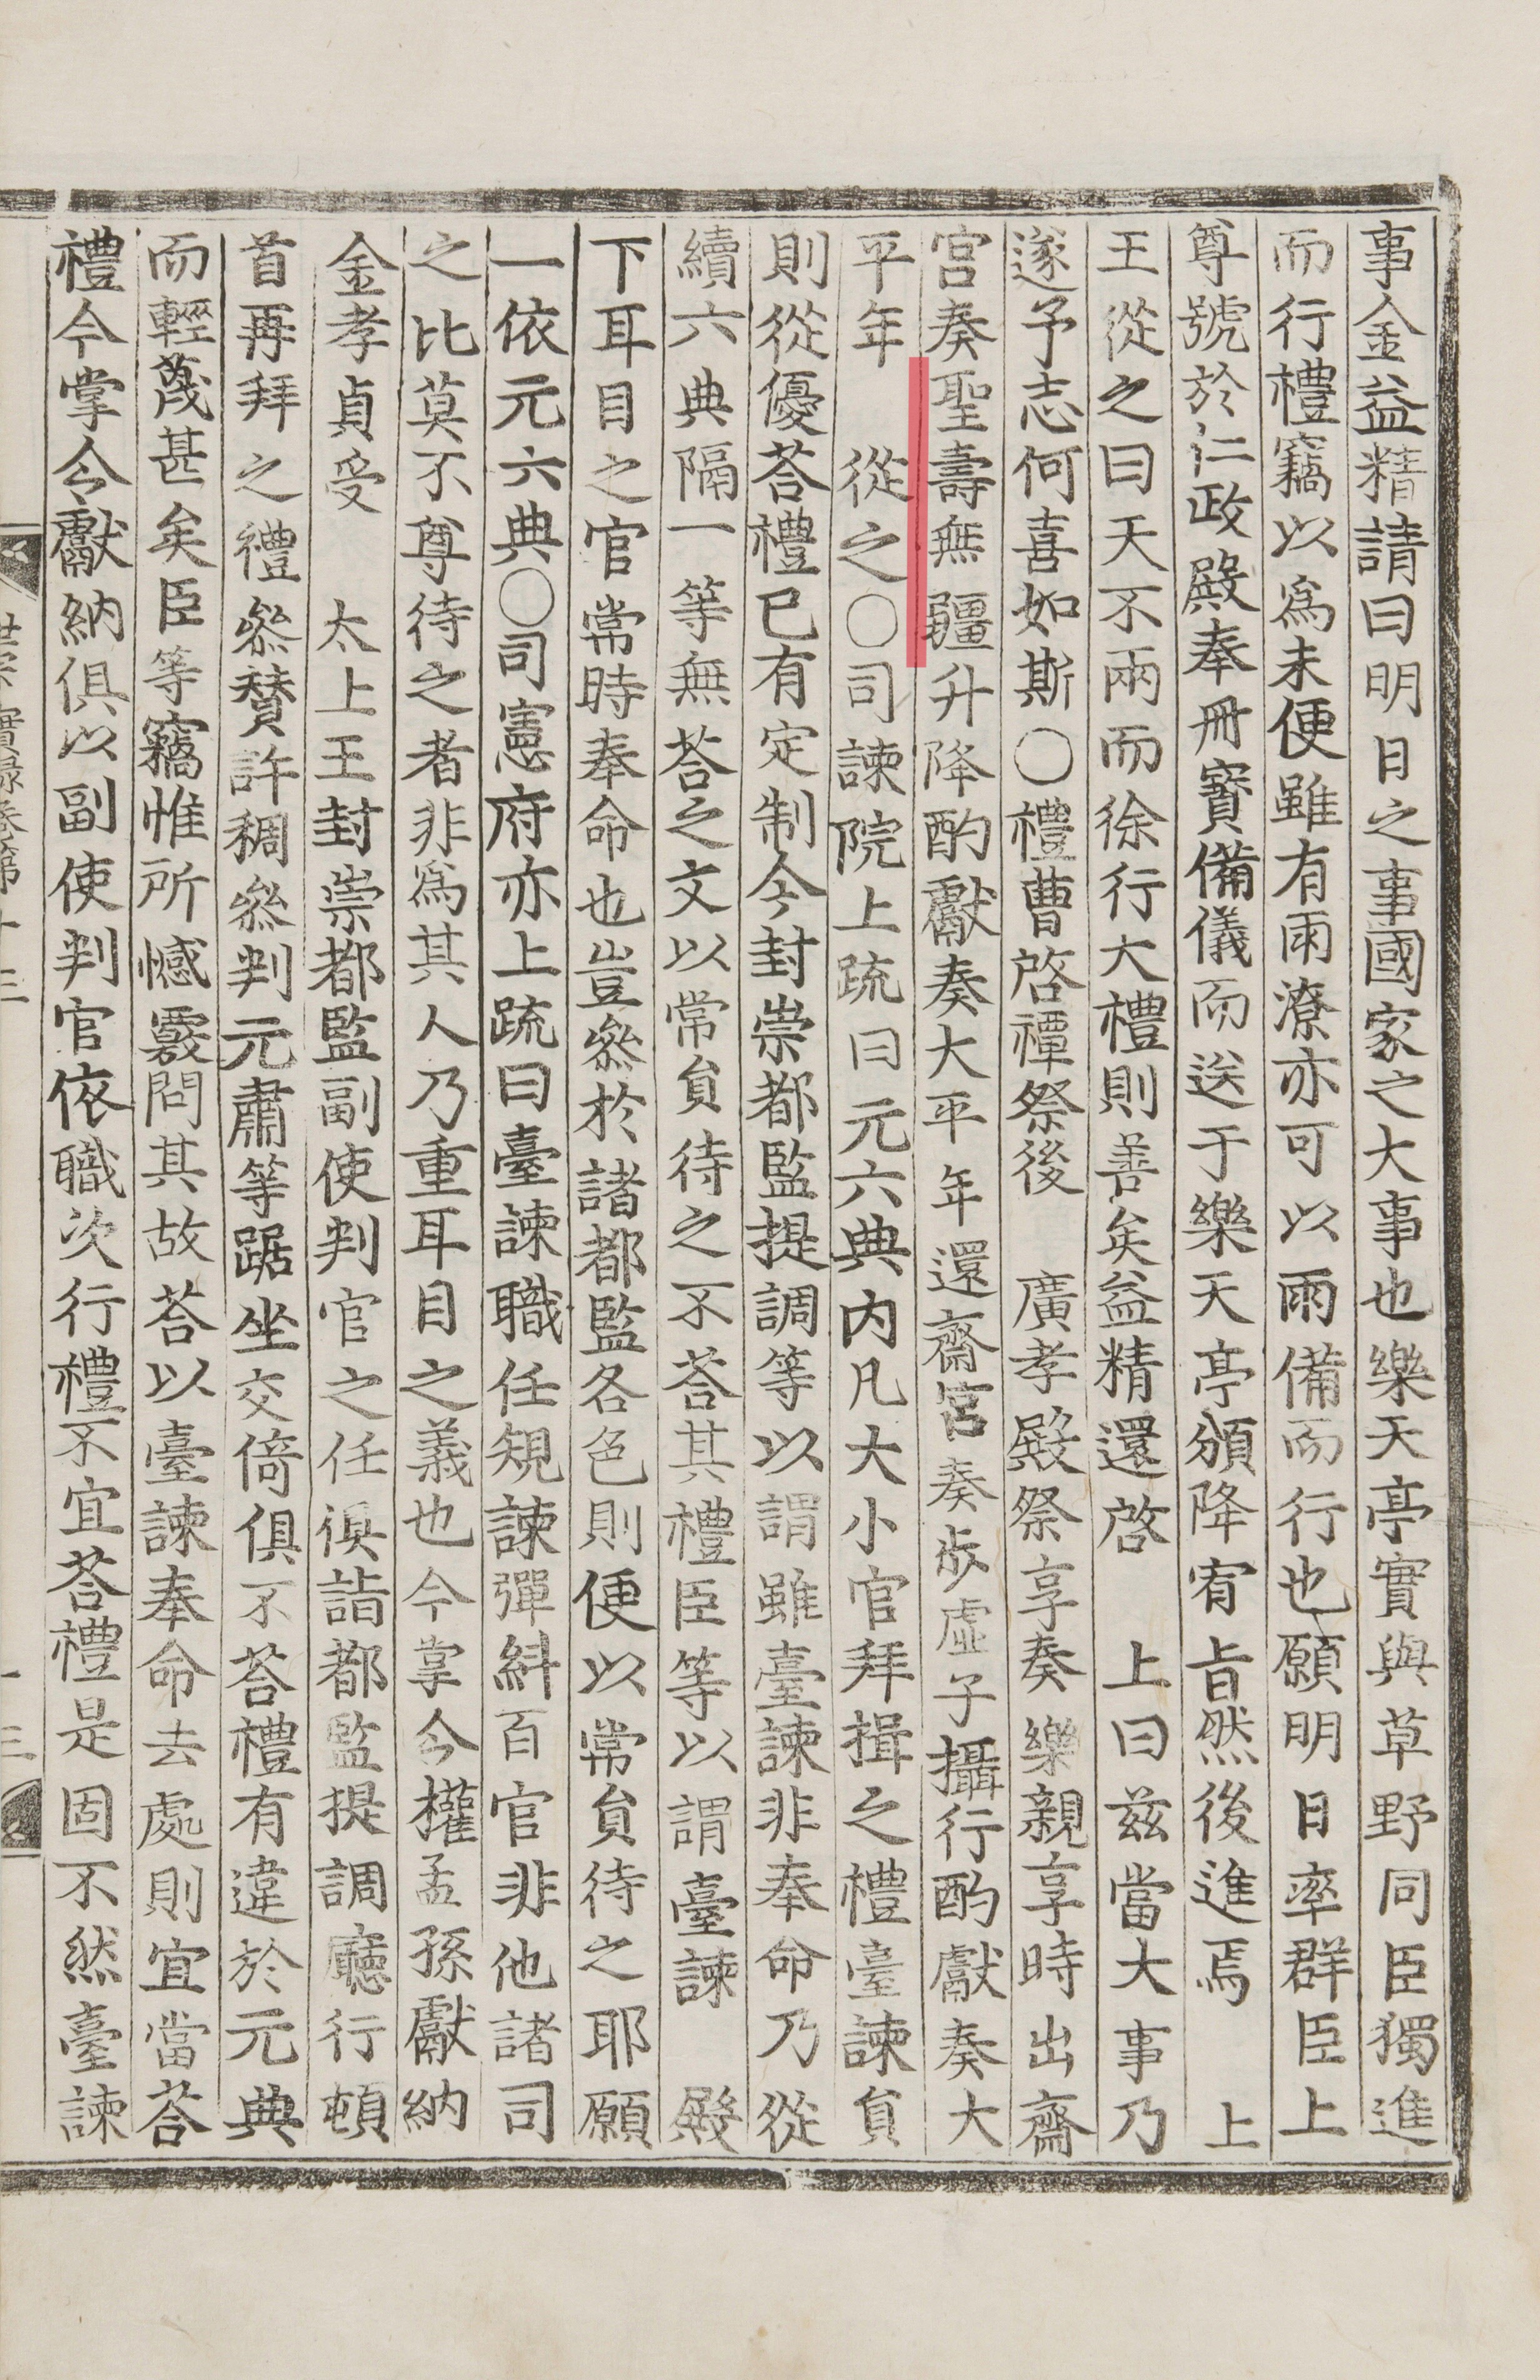 事金益精請曰明日之事國家之大事也樂天亭實與草野同臣獨進
而行禮竊以爲未便雖有雨潦亦可以雨備而行也願明日率群臣上
尊號於仁政殿奉冊寶備儀而送于樂天亭頒降宥旨然後進焉 上
王從之曰天不雨而徐行大禮則善矣益精還啓 上曰玆當大事乃
遂予志何喜如斯○禮曹啓禫祭後 廣孝殿祭享奏樂親享時出齋
宮奏聖壽無疆升降酌獻奏大平年還齋宮奏步虛子攝行酌獻奏大
平年 從之○司諫院上疏曰元六典內凡大小官拜揖之禮臺諫員
則從優荅禮已有定制今封崇都監提調等以謂雖臺諫非奉命乃從
續六典隔一等無荅之文以常員待之不荅其禮臣等以謂臺諫 殿
下耳目之官常時奉命也豈叅於諸都監各色則便以常員待之耶願
一依元六典○司憲府亦上疏曰臺諫職任規諫彈糾百官非他諸司
之比莫不尊待之者非爲其人乃重耳目之義也今掌令權孟孫獻納
金孝貞受 太上王封崇都監副使判官之任俱詣都監提調廳行頓
首再拜之禮叅贊許稠叅判元肅等踞坐交倚俱不荅禮有違於元典
而輕蔑甚矣臣等竊惟所憾覈問其故荅以臺諫奉命去處則宜當荅
禮今掌令獻納俱以副使判官依職次行禮不宜荅禮是固不然臺諫
世宗實錄卷第十三
十三